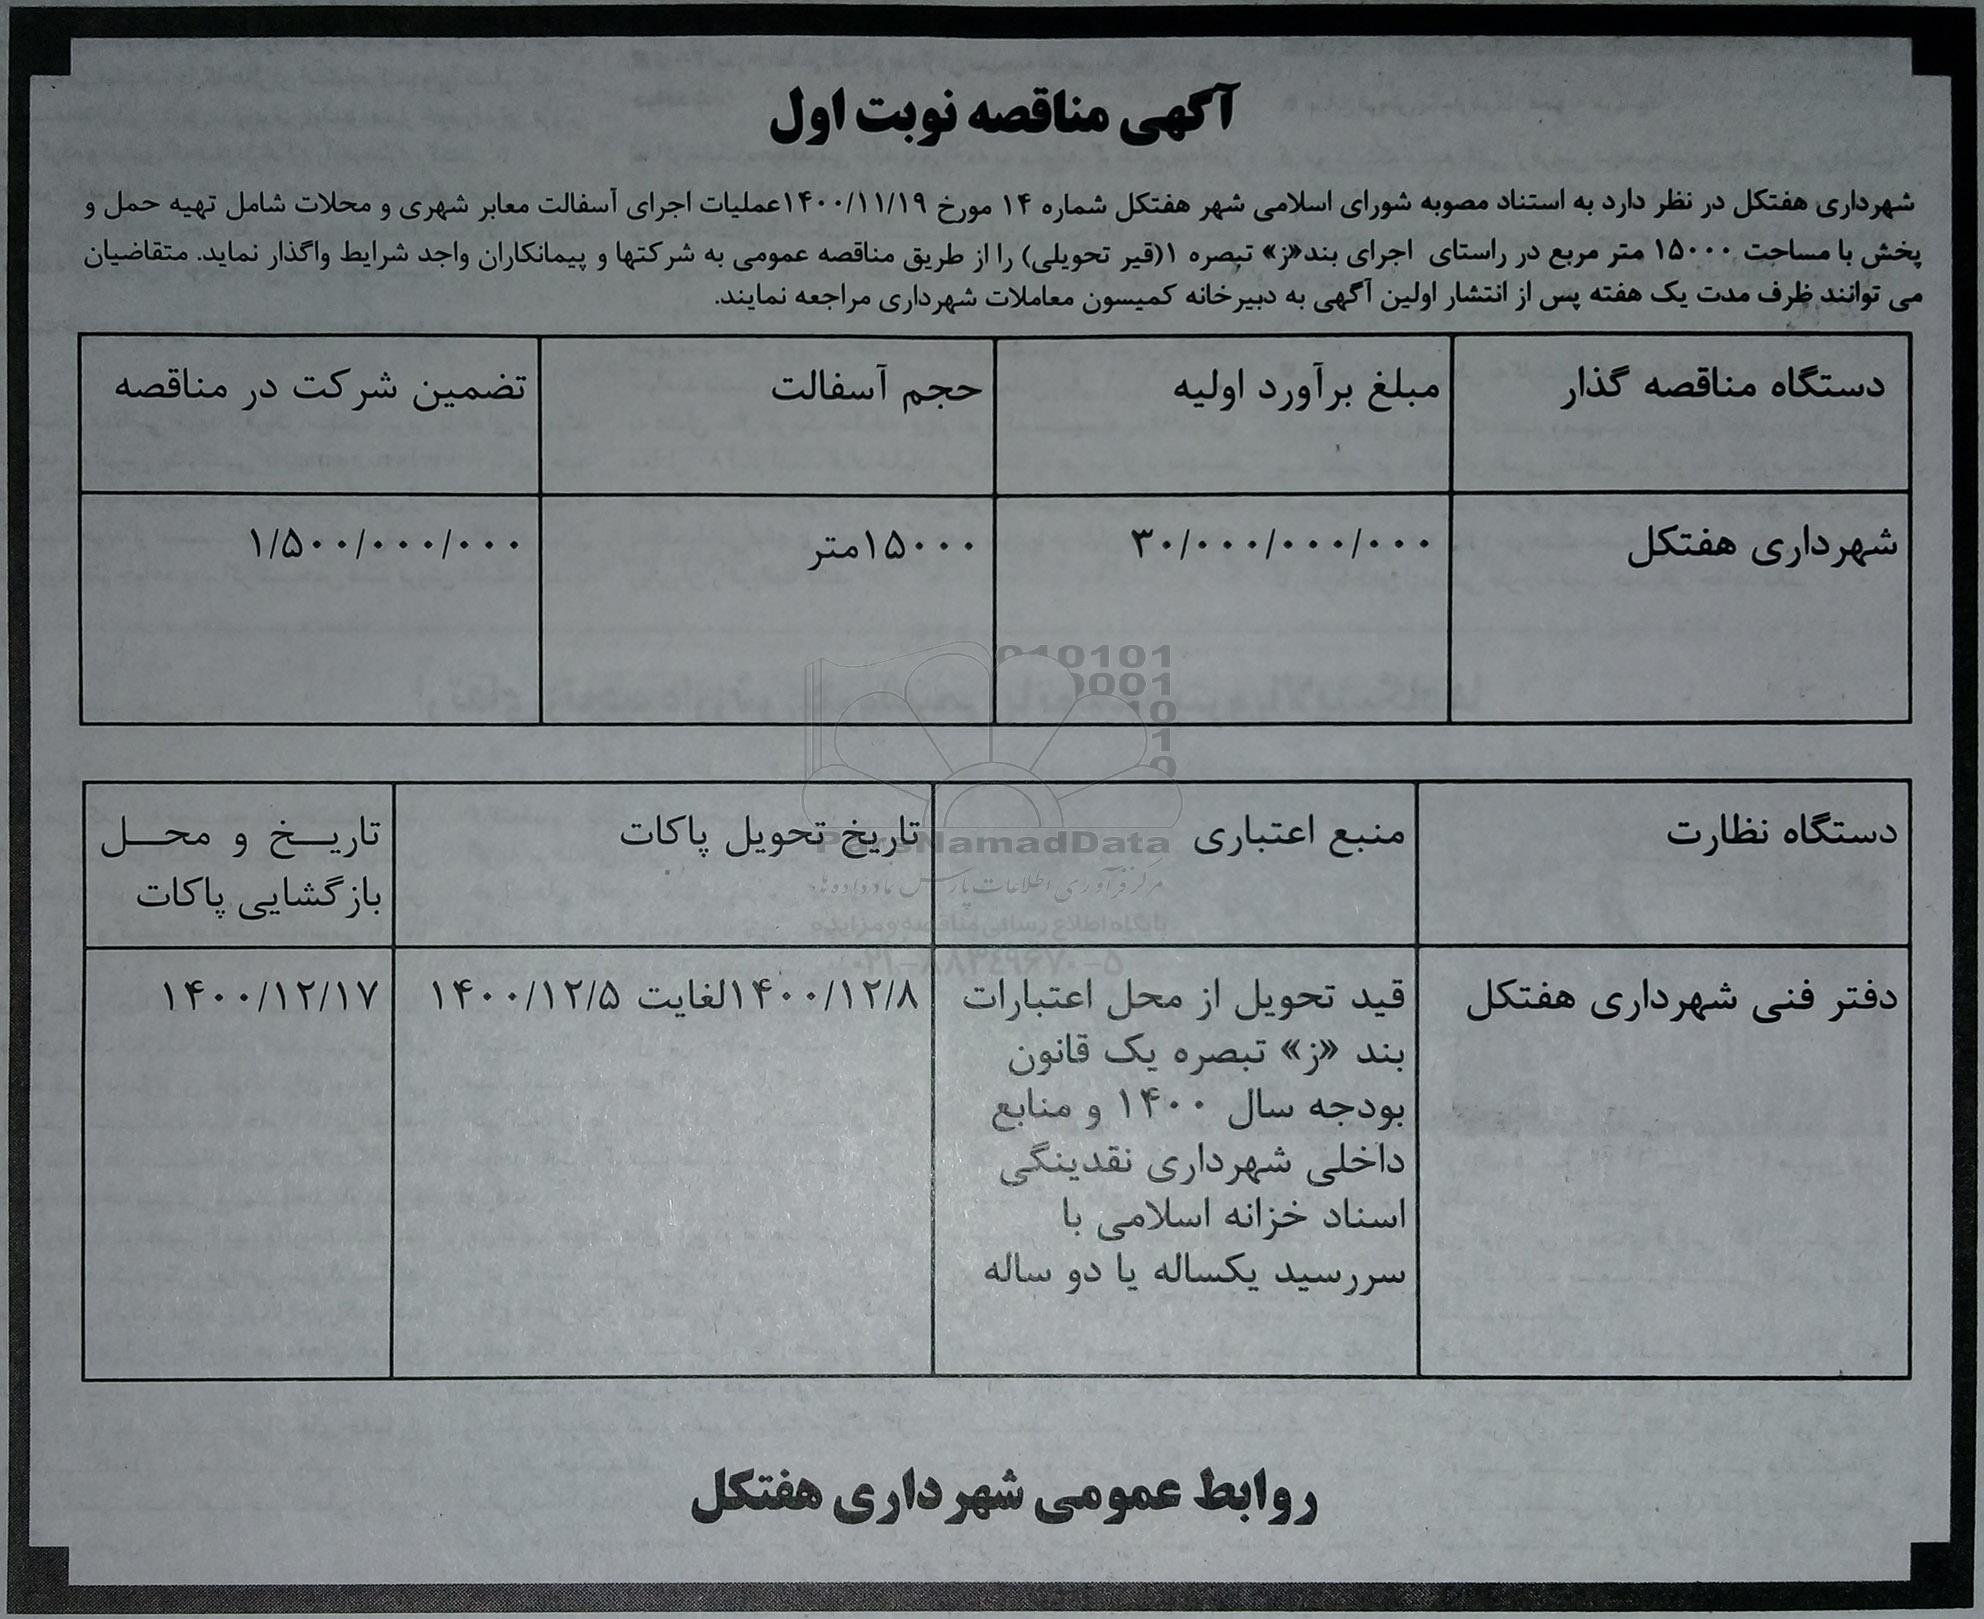 آگهی مناقصه نوبت اول
شهرداری هفتکل در نظر دارد به استناد مصوبه شورای اسلامی شهر هفتکل شماره ۱۴ مورخ ۱۴۰۰/۱۱/۱۹عملیات اجرای آسفالت معابر شهری و محلات شامل تهیه حمل و
پخش با مساحت ۱۵۰۰۰ متر مربع در راستای اجرای بند«ز» تبصره ۱(قیر تحویلی) را از طریق مناقصه عمومی به شرکتها و پیمانکاران واجد شرایط واگذار نماید. متقاضیان
می توانند ظرف مدت یک هفته پس از انتشار اولین آگهی به دبیرخانه کمیسون معاملات شهرداری مراجعه نمایند.
دستگاه مناقصه گذار
مبلغ برآورد اولیه
حجم آسفالت
تضمین شرکت در مناقصه
شهرداری هفتکل
۳۰/۰۰۰/۰۰۰/۰۰۰
۱۵۰۰۰متر
۱/۵۰۰/۰۰۰/۰۰۰
010101
0001
10
1
0
دستگاه نظارت
منبع اعتباری
تاریخ تحویل پاکات
تاریخ و محل
بازگشایی پاکات
ParsNamadData
مرکز فرآوری اطلاعات پارس نماد داده ها
پایگاه اطلاع رسانی مناقصه و مزایده
۰۲۱-۸۸۳۴۹۶۷۰-۵
دفتر فنی شهرداری هفتکل
قید تحویل از محل اعتبارات
بند «ز» تبصره یک قانون
بودجه سال ۱۴۰۰ و منابع
داخلی شهرداری نقدینگی
اسناد خزانه اسلامی با
سررسید یکساله یا دو ساله
۱۴۰۰/۱۲/۸لغایت ۱۴۰۰/۱۲/۵
۱۴۰۰/۱۲/۱۷
روابط عمومی شهرداری هفتکل